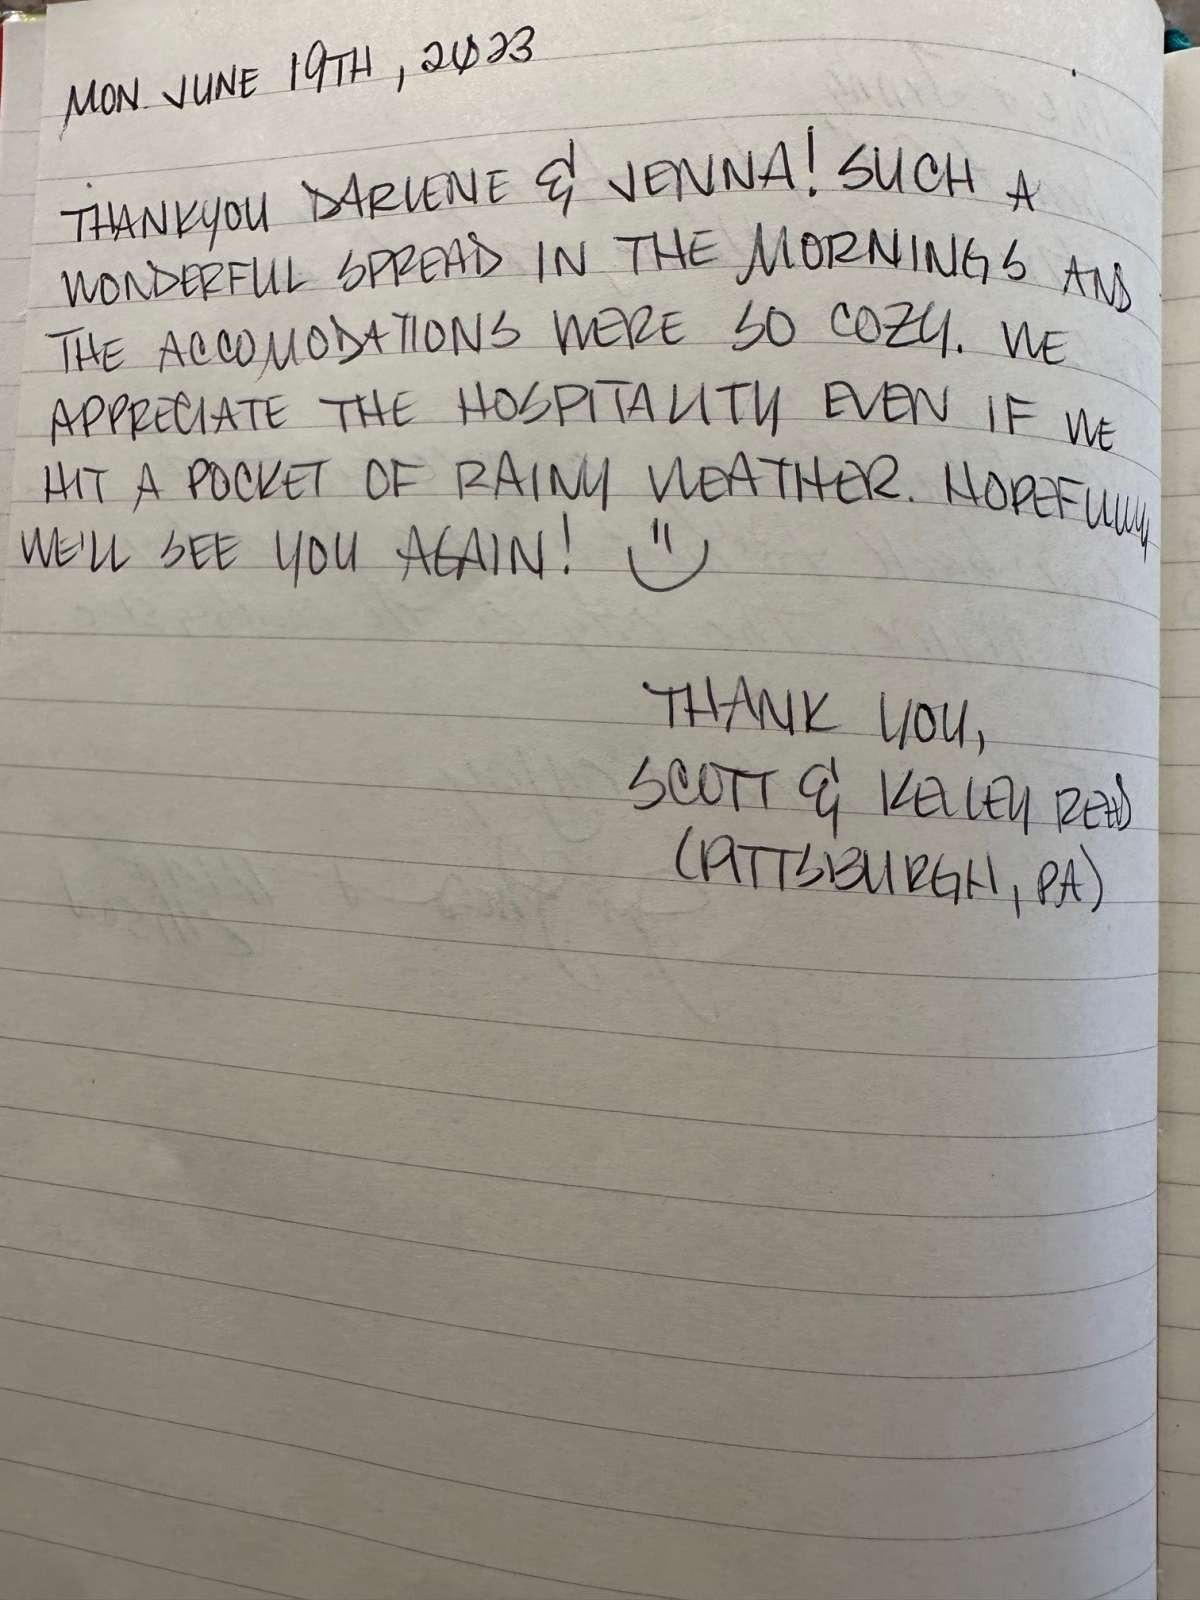 MON. JUNE 19TH, 2023
THANKYOU DARLENE & JENNA! SUCH A
WONDERFUL SPREAD IN THE MORNINGS AND
THE ACCOMODATIONS WERE SO COZY. WE
APPRECIATE THE HOSPITALITY EVEN IF WE
HIT A POCKET OF RAINY WEATHER. HOPEFULLY
WE'LL SEE YOU AGAIN!
THANK YOU,
SCOTT & KELLEY REED
(PITTSBURGH, PA)